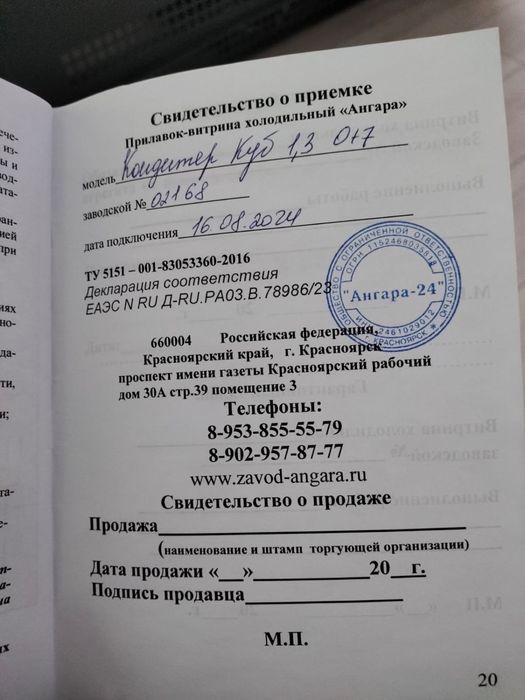 Свидетельство о приемке
Прилавок-витрина холодильный «Ангара»
модель Кондитер Куб 1,3 0+7
заводской № 02168
дата подключения 16.08.2024
ТУ 5151 – 001-83053360-2016
Декларация соответствия
ЕАЭС N RU Д-RU.РА03.В.78986/23
ОБЩЕСТВО С ОГРАНИЧЕННОЙ ОТВЕТСТВЕННОСТЬЮ
"Ангара-24"
ИНН 2461029012
г. КРАСНОЯРСК
660004 Российская федерация,
Красноярский край, г. Красноярск
проспект имени газеты Красноярский рабочий
дом 30А стр.39 помещение 3
Телефоны:
8-953-855-55-79
8-902-957-87-77
www.zavod-angara.ru
Свидетельство о продаже
Продажа
(наименование и штамп торгующей организации)
Дата продажи «__»____________20__г.
Подпись продавца
М.П.
20